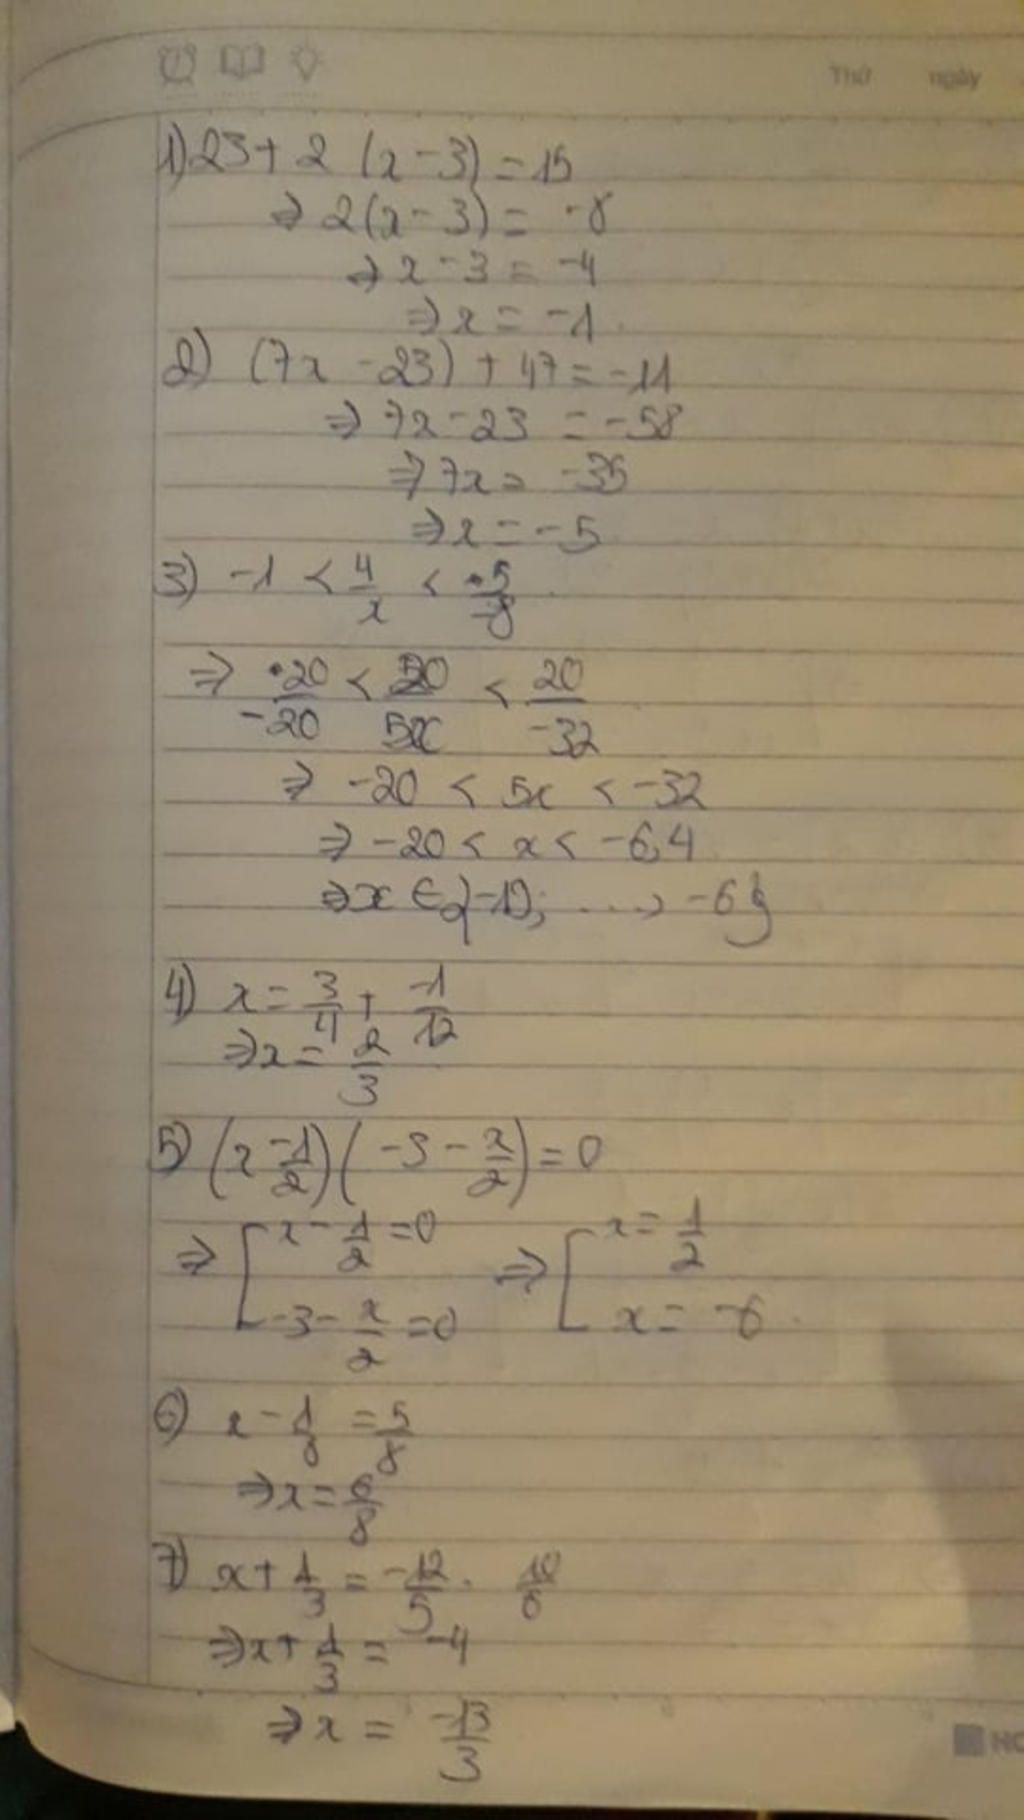 Thứ ngày
1) 23 + 2 (x - 3) = 15
⇒ 2(x - 3) = -8
⇒ x - 3 = -4
⇒ x = -1.
2) (7x - 23) + 47 = -11
⇒ 7x - 23 = -58
⇒ 7x = -35
⇒ x = -5
3) -1 < 4/x < 5/-8
⇒ 20/-20 < 20/5x < 20/-32
⇒ -20 < 5x < -32
⇒ -20 < x < -6,4
⇒ x ∈ {-19; ....; -6}
4) x = 3/4 + -1/12
⇒ x = 2/3
5) (x - 1/2)(-3 - x/2) = 0
⇒ [ x - 1/2 = 0 ⇒ [ x = 1/2
-3 - x/2 = 0 x = -6.
6) x - 1/8 = 5/8
⇒ x = 6/8
7) x + 1/3 = -12/5 . 10/6
⇒ x + 1/3 = -4
⇒ x = -13/3
HO